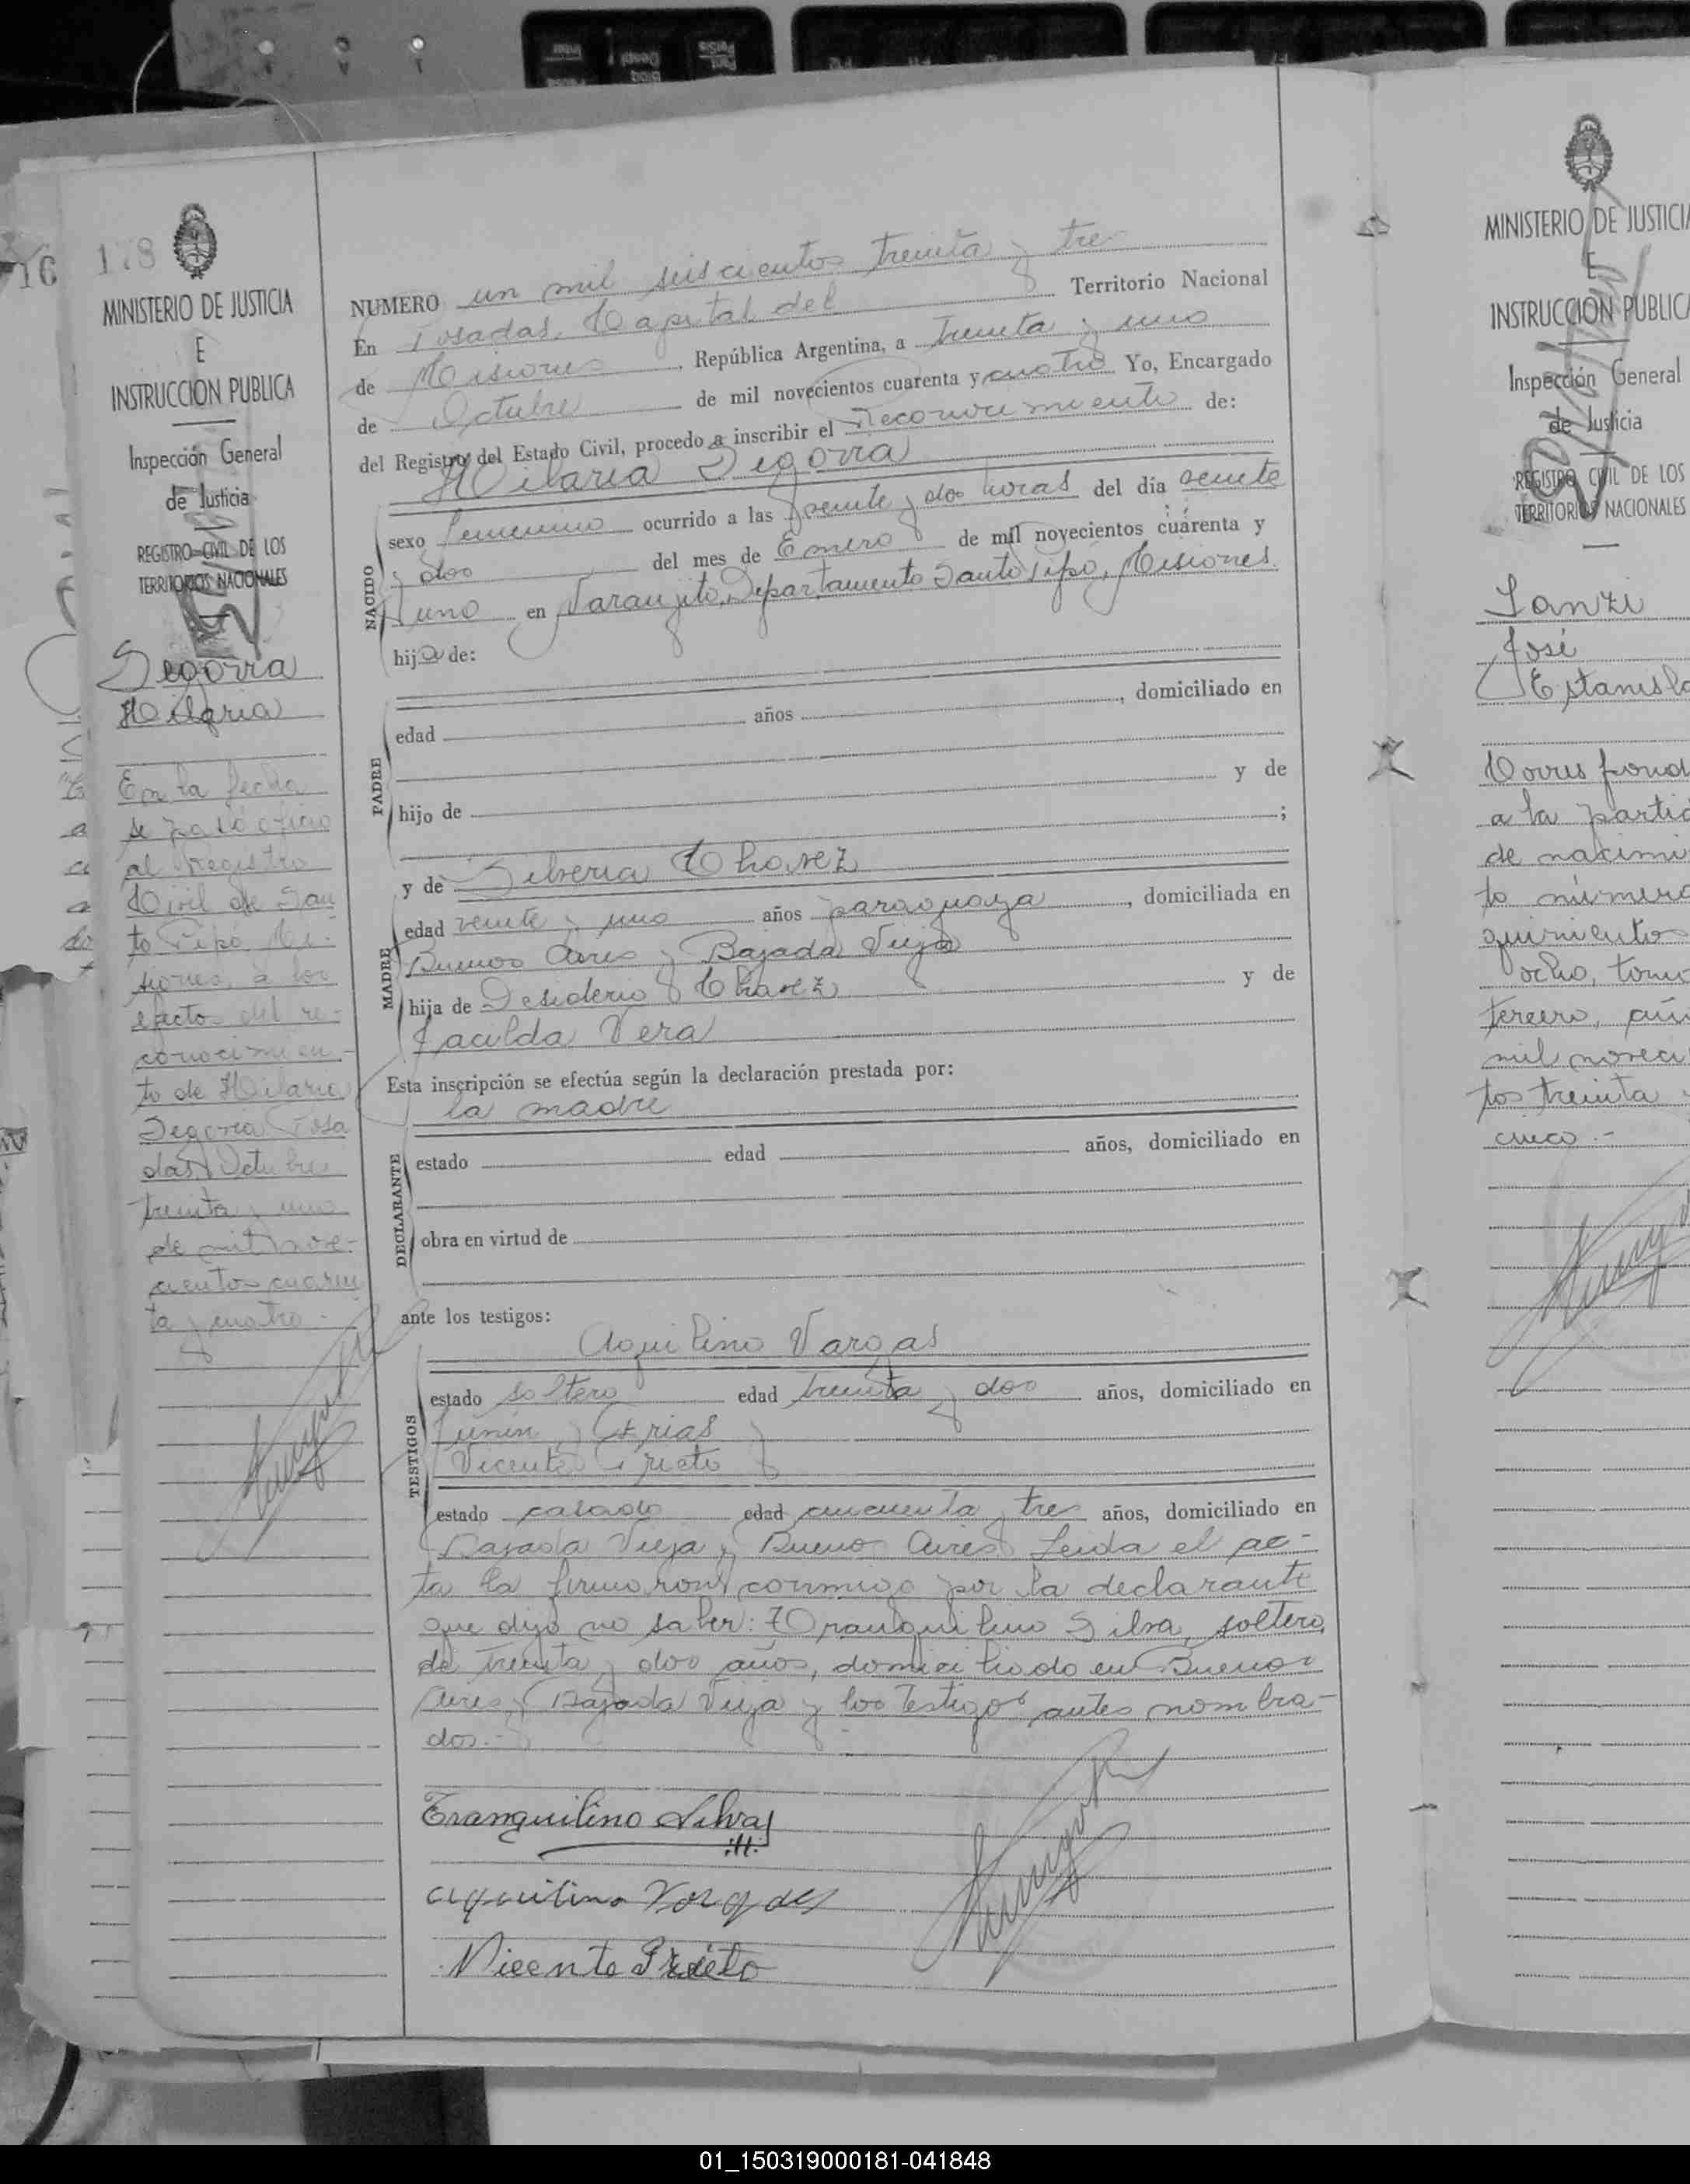 Inter
Despl
Bloq
178
MINISTERIO DE JUSTICIA
E
INSTRUCCION PUBLICA
Inspección General
de Justicia
REGISTRO CIVIL DE LOS
TERRITORIOS NACIONALES
Segovia
Hilaria
En la fecha
se pasó oficio
al Registro
Civil de San
to Pipó, Mi-
siones, a los
efectos del re-
conocimien-
to de Hilaria
Segovia Posa
das, Octubre
treinta y uno
de mil nove-
cientos cuaren
ta y cuatro.-
NUMERO un mil seiscientos treinta y tres
En Posadas, Capital del Territorio Nacional
de Misiones, República Argentina, a treinta y uno
de Octubre de mil novecientos cuarenta y cuatro Yo, Encargado
del Registro del Estado Civil, procedo a inscribir el Reconocimiento de:
Hilaria Segovia
NACIDO
sexo femenino ocurrido a las veinte y dos horas del día veinte
y dos del mes de Enero de mil novecientos cuarenta y
uno en Naranjito, Departamento Santo Pipó, Misiones
hija de:
PADRE
edad años , domiciliado en
y de
hijo de ;
MADRE
y de Silveria Chavez
edad veinte y uno años paraguaya, domiciliada en
Buenos Aires y Bajada Vieja
hija de Desiderio Chavez y de
Vera
Esta inscripción se efectúa según la declaración prestada por:
la madre
DECLARANTE
estado edad años, domiciliado en
obra en virtud de
ante los testigos:
TESTIGOS
Aquilino Vargas
estado soltero edad treinta y dos años, domiciliado en
Junin y Frias
Vicente Prieto
estado casado edad cincuenta y tres años, domiciliado en
Bajada Vieja y Buenos Aires Leida el ac-
ta la firmaron conmigo por la declarante
que dijo no saber: Tranquilino Silva, soltero,
de treinta y dos años, domiciliado en Buenos
Aires y Bajada Vieja y los testigos antes nombra-
dos.-
Tranquilino Silva
aquilino Vargas
Vicente Prieto
MINISTERIO DE JUSTICIA
E
INSTRUCCION PUBLICA
Inspección General
de Justicia
REGISTRO CIVIL DE LOS
TERRITORIOS NACIONALES
José
Estanisla
Corres pond
a la partid
de nacimi
to número
quinientos
ocho, tomo
tercero, año
mil noveci
tos treinta y
cinco.-
01_150319000181-041848